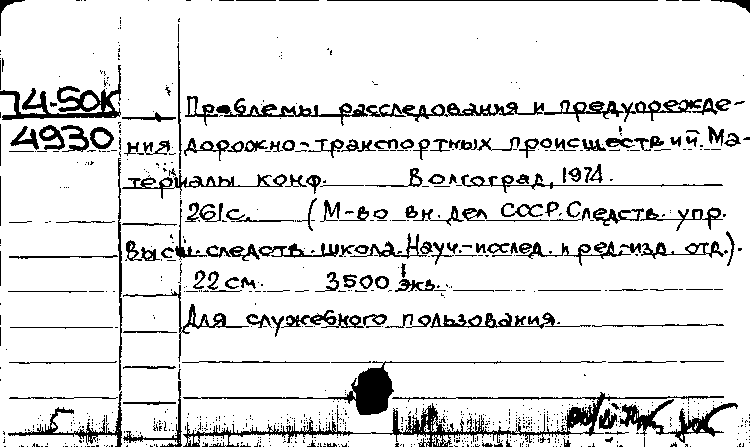 74-50К
4930
Проблемы расследования и предупрежде-
ния дорожно-транспортных происшествий. Ма-
териалы конф. Волгоград, 1974.
261 с. (М-во вн. дел СССР. Следств. упр.
Высш. следств. школа. Науч.-исслед. и ред.-изд. отд.).
22 см. 3500 экз.
Для служебного пользования.
5